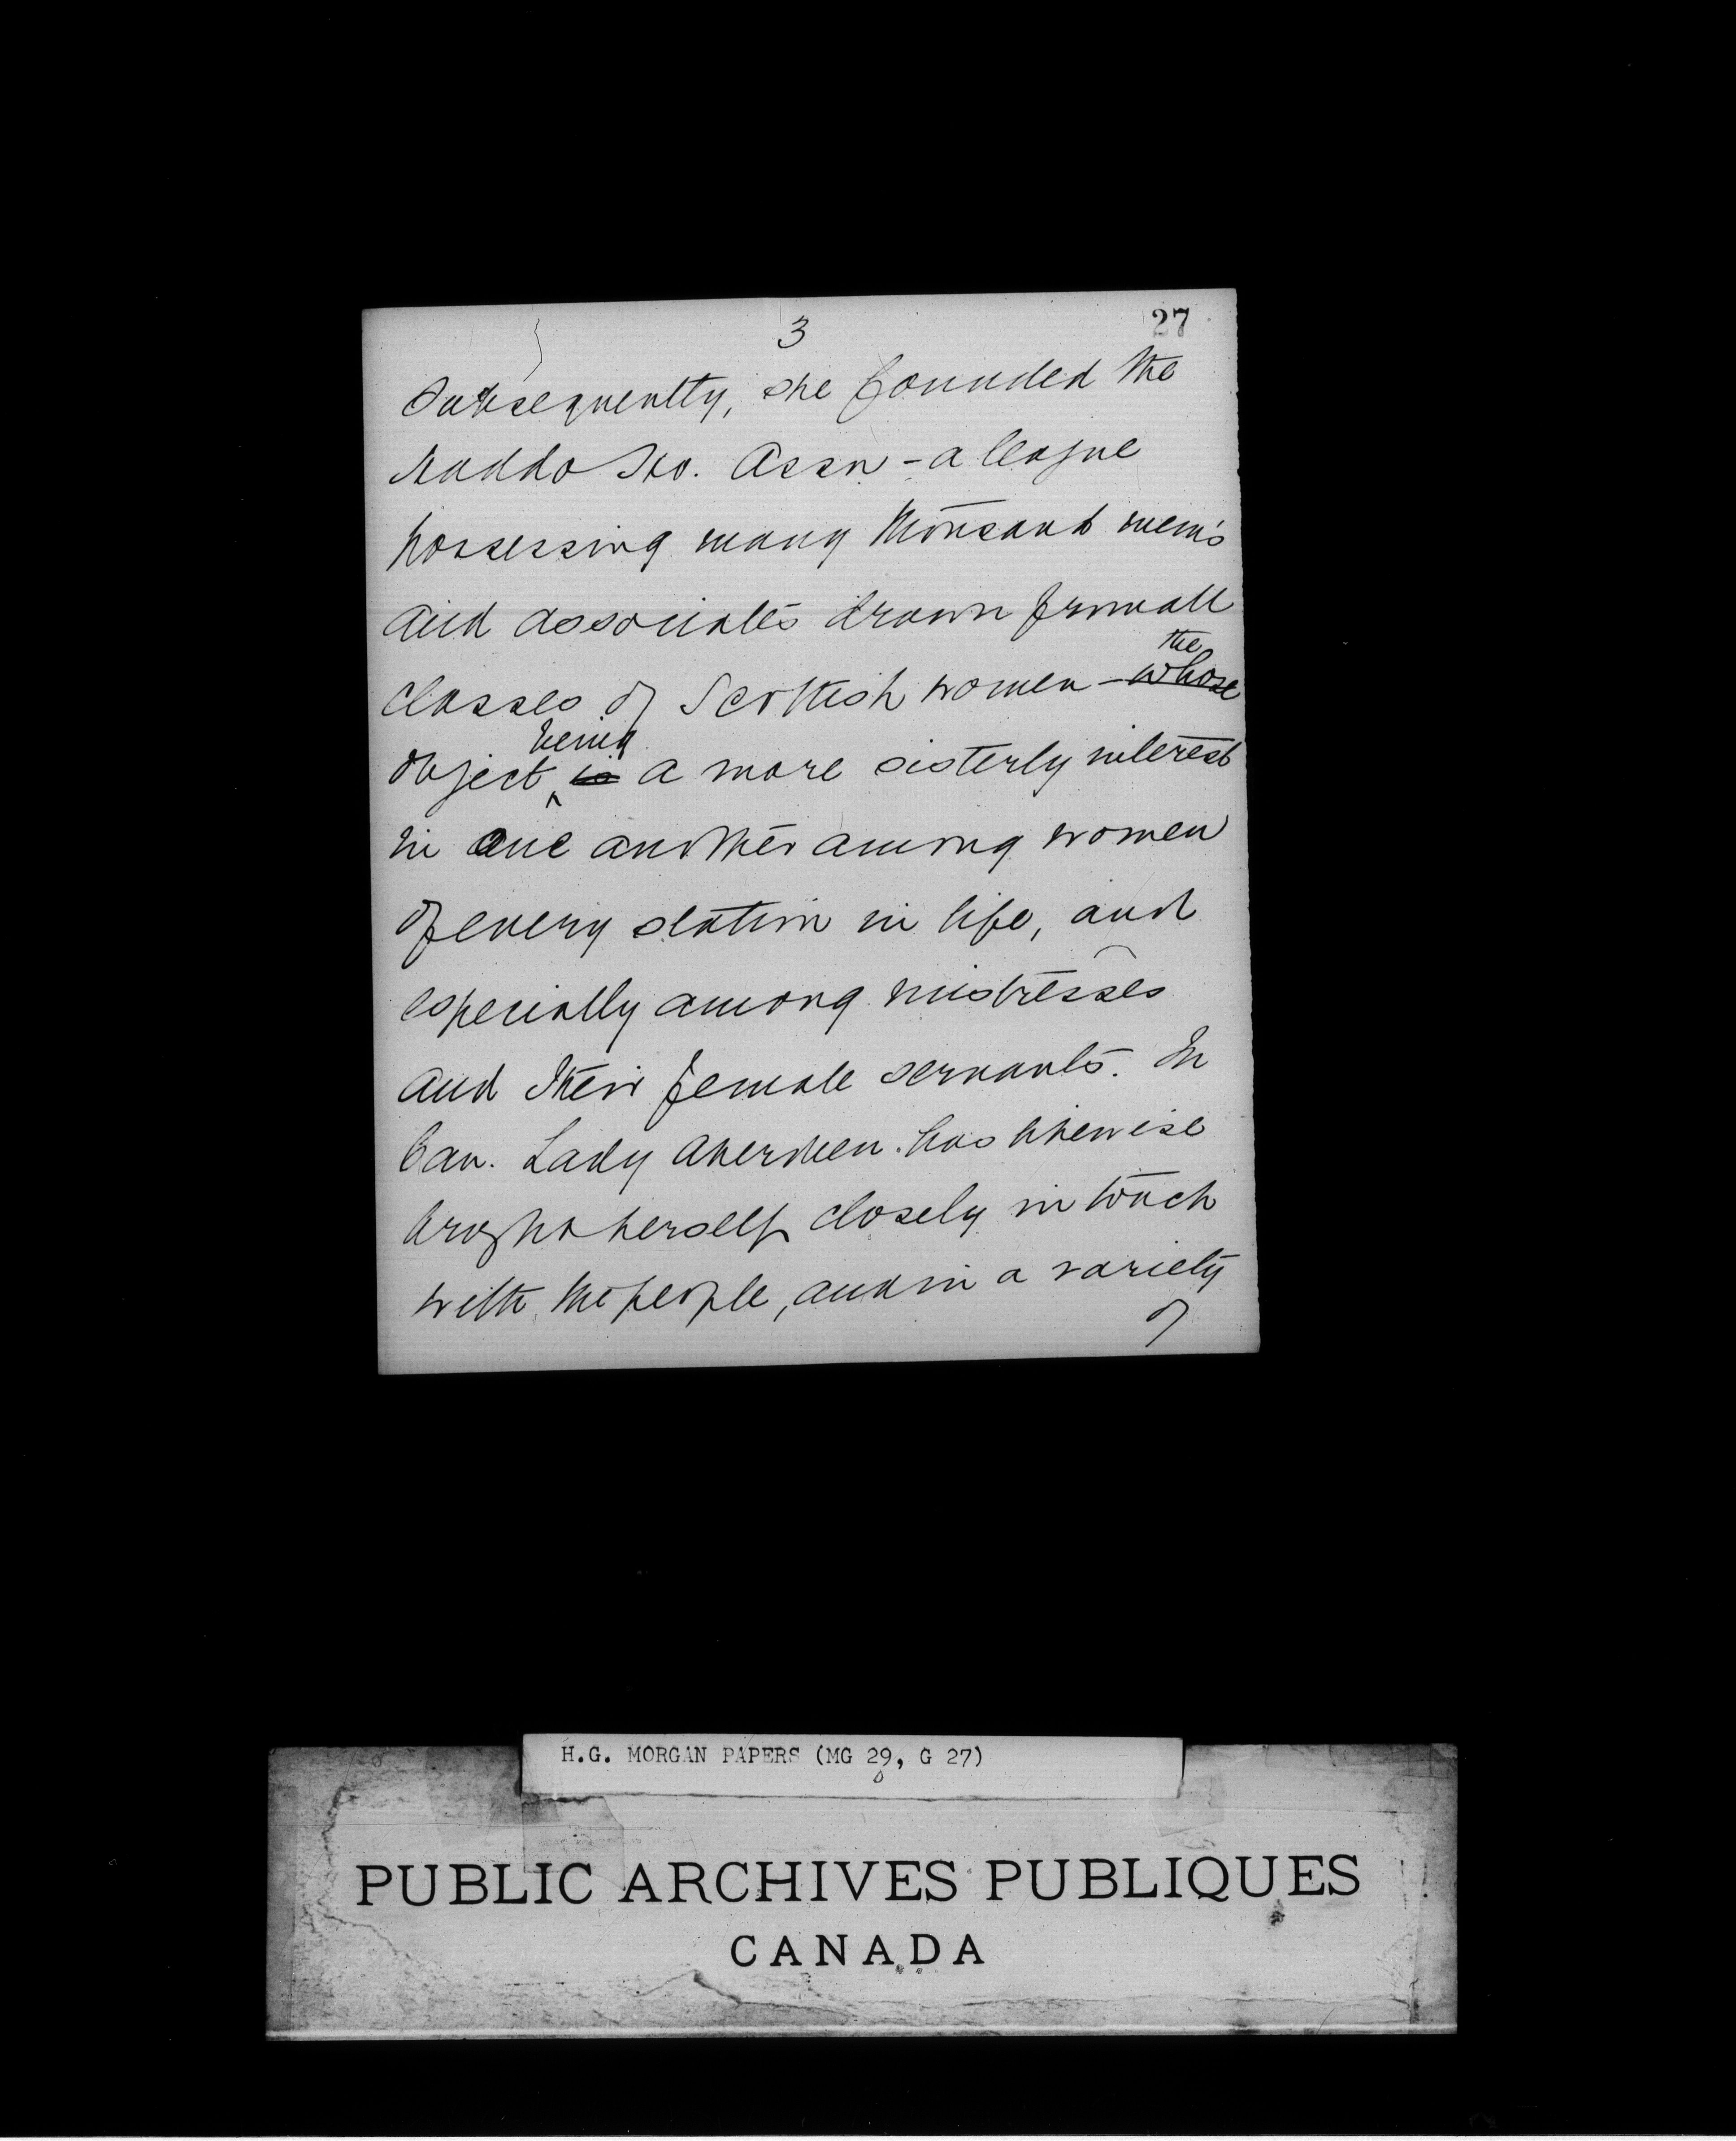 3
27
Subsequently, she founded the
Haddo Ho. Assn - a league
possessing many thousand mem's
and associates drawn from all
classes of Scottish women - whose the
object, is being a more sisterly interest
in one another among women
of every station in life, and
especially among mistresses
and their female servants. In
Can. Lady Aberdeen. has likewise
brought herself closely in touch
with the people, and in a variety
of
H.G. MORGAN PAPERS (MG 29, G 27)
D
PUBLIC ARCHIVES PUBLIQUES
CANADA